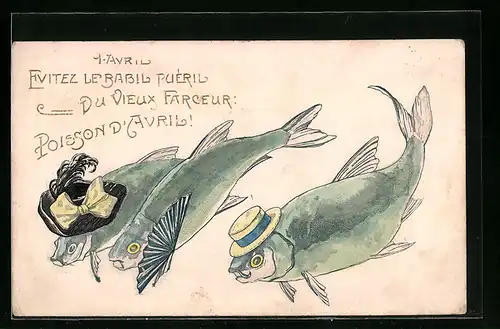 1·AVRIL
EVITEZ LE BABIL PUÉRIL
DU VIEUX FARCEUR:
POISSON D'AVRIL!